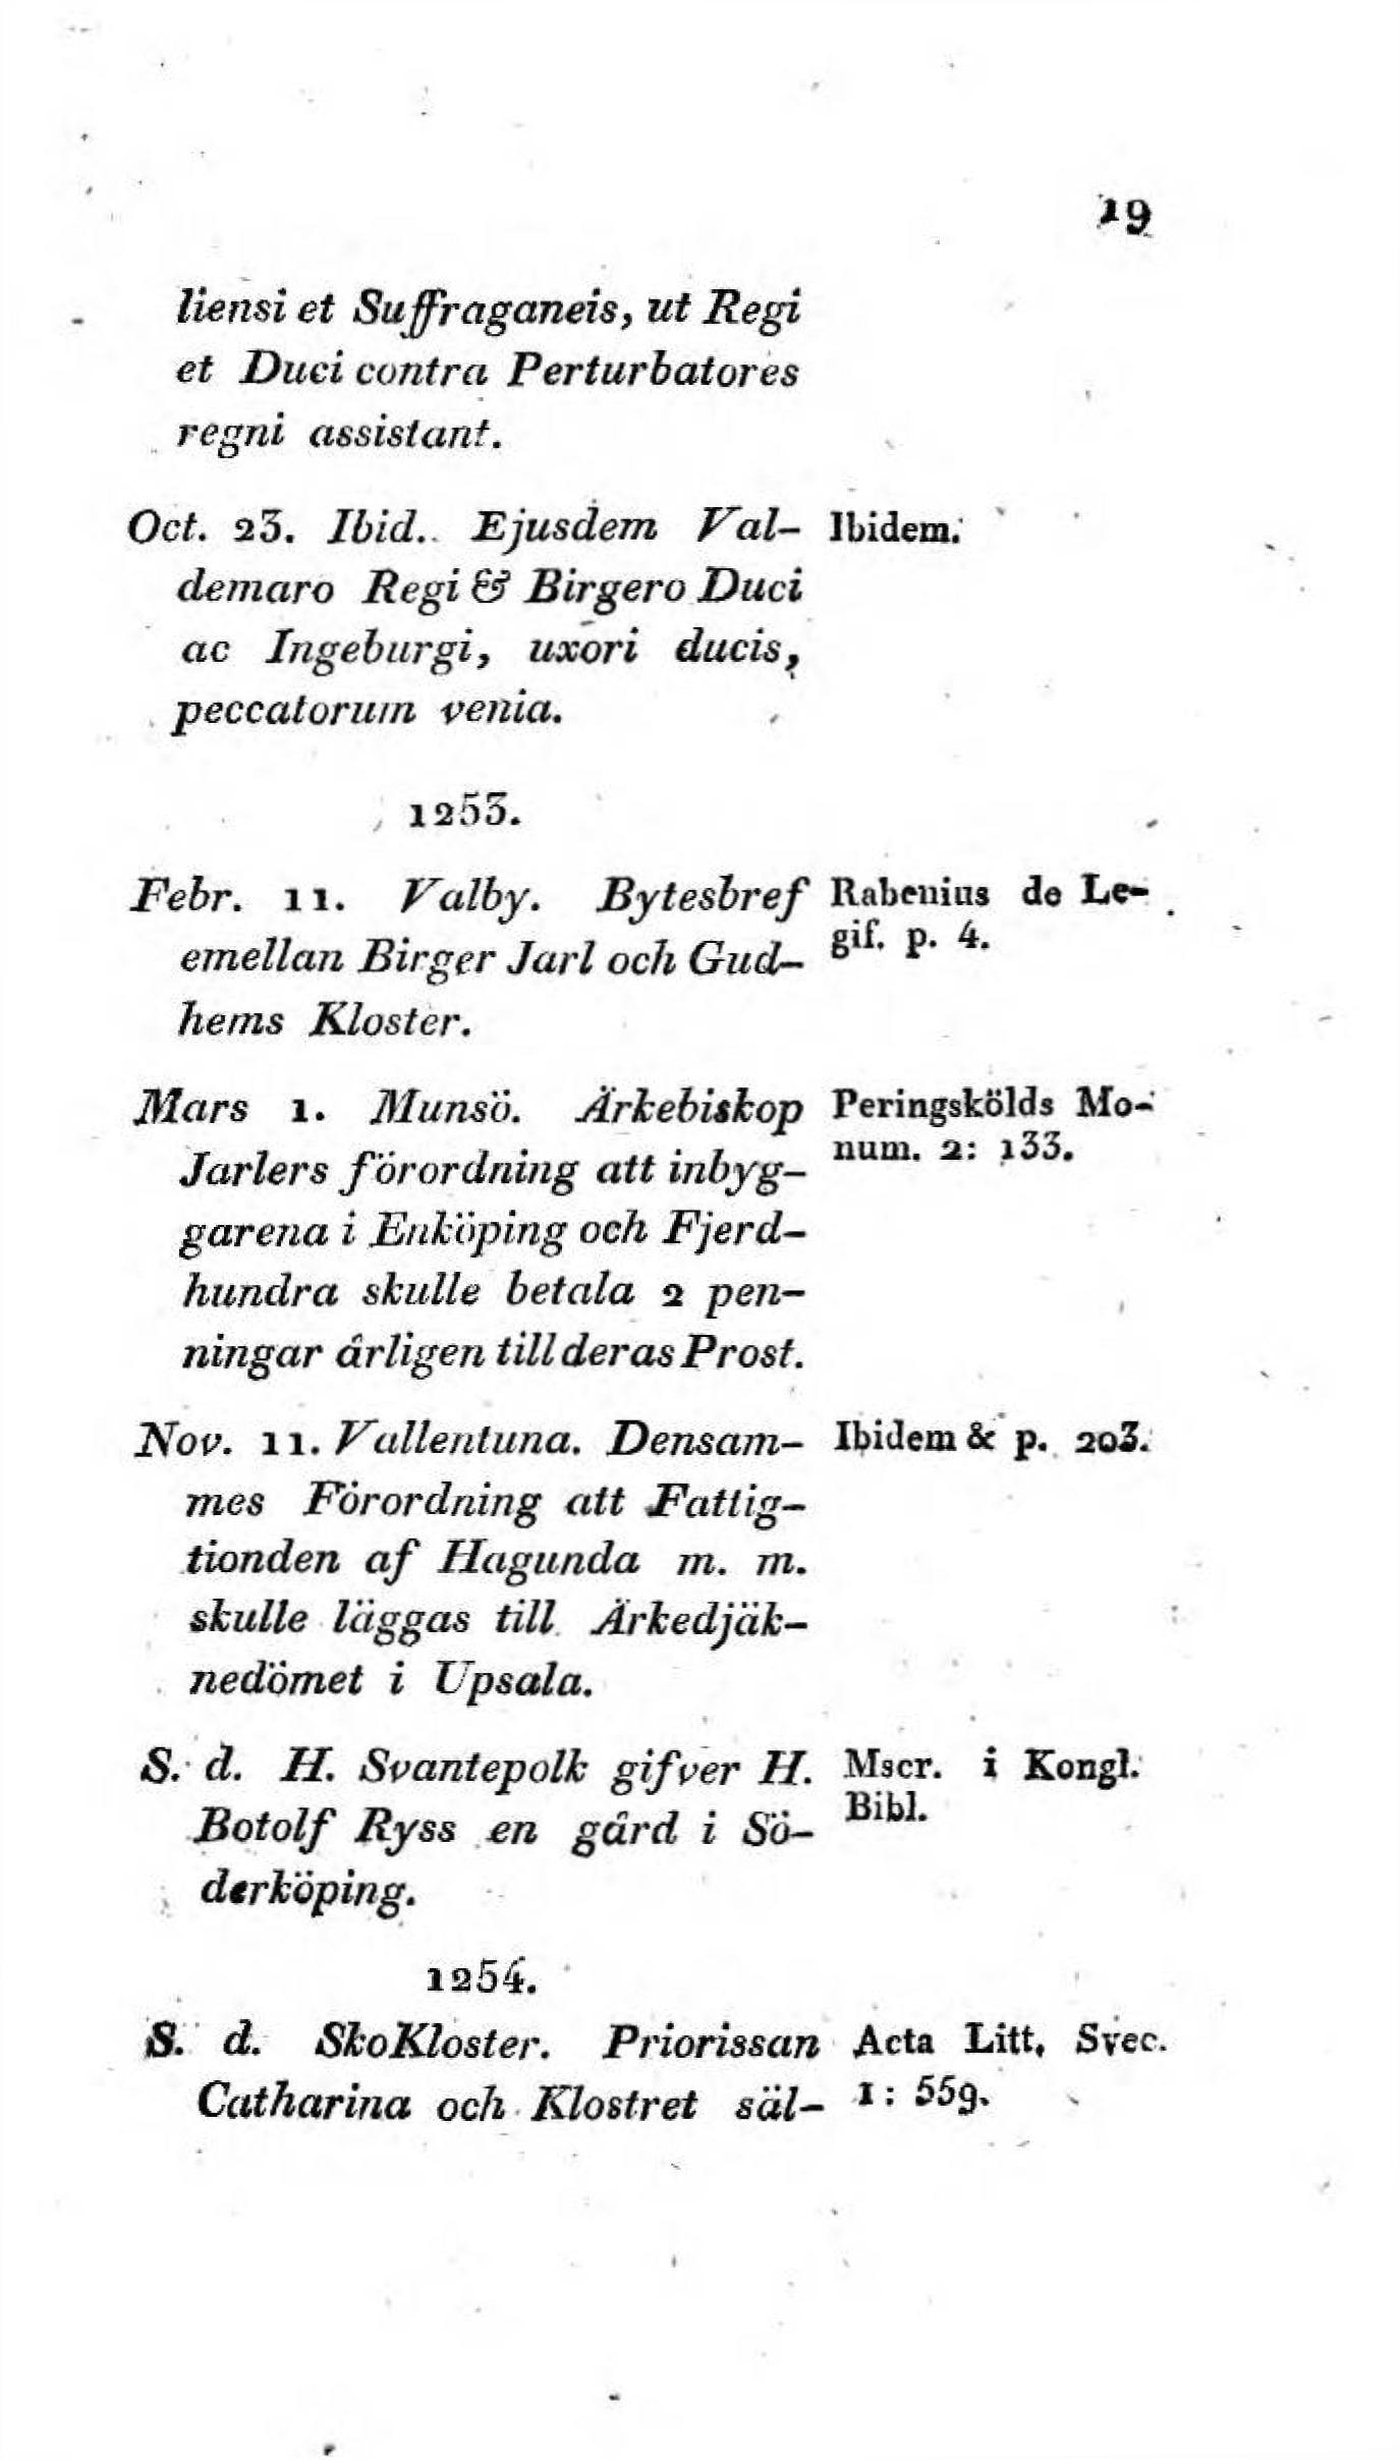 19
liensi et Suffraganeis, ut Regi
et Duci contra Perturbatores
regni assistant.
Oct. 23. Ibid. Ejusdem Val- Ibidem.
demaro Regi & Birgero Duci
ac Ingeburgi, uxori ducis,
peccatorum venia.
1253.
Febr. 11. Valby. Bytesbref Rabenius de Le-
emellan Birger Jarl och Gud- gif. p. 4.
hems Kloster.
Mars 1. Munsö. Ärkebiskop Peringskölds Mo-
Jarlers förordning att inbyg- num. 2: 133.
garena i Enköping och Fjerd-
hundra skulle betala 2 pen-
ningar årligen till deras Prost.
Nov. 11. Vallentuna. Densam- Ibidem & p. 203.
mes Förordning att Fattig-
tionden af Hagunda m. m.
skulle läggas till Ärkedjäk-
nedömet i Upsala.
S. d. H. Svantepolk gifver H. Mscr. i Kongl.
Botolf Ryss en gård i Sö- Bibl.
derköping.
1254.
S. d. SkoKloster. Priorissan Acta Litt. Svec.
Catharina och Klostret säl- 1: 559.